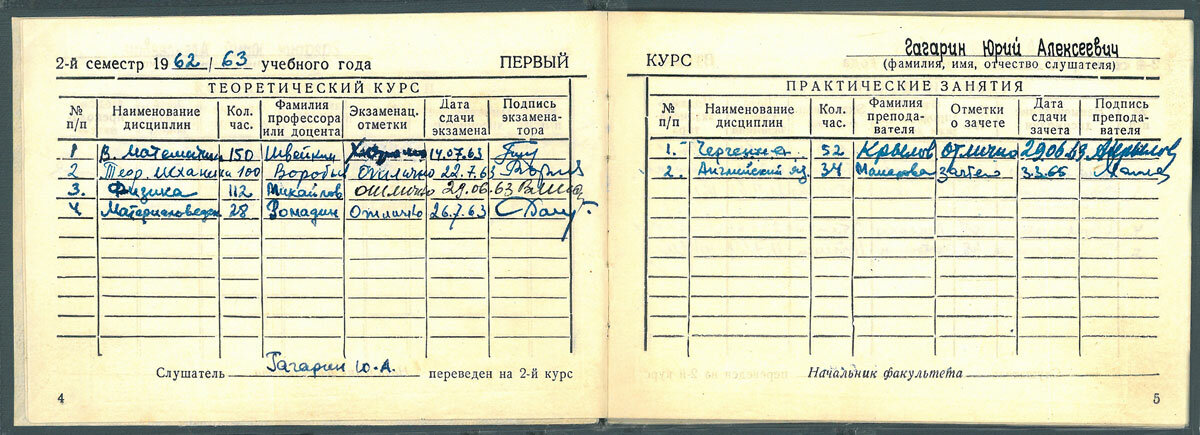 2-й семестр 1962/63 учебного года ПЕРВЫЙ
ТЕОРЕТИЧЕСКИЙ КУРС
№ п/п Наименование дисциплин Кол. час. Фамилия профессора или доцента Экзаменац. отметки Дата сдачи экзамена Подпись экзаменатора
1 В. Математика 150 Швейкин 14.07.63
2 Теор. механика 100 Воробьи отлично 22.7.63
3. Физика 112 Михайлов отлично 29.06.63
4 Материаловеден 28 Ромадин Отлично 26.7.63
Слушатель Гагарин Ю.А. переведен на 2-й курс
4
КУРС Гагарин Юрий Алексеевич
(фамилия, имя, отчество слушателя)
ПРАКТИЧЕСКИЕ ЗАНЯТИЯ
№ п/п Наименование дисциплин Кол. час. Фамилия преподавателя Отметки о зачете Дата сдачи зачета Подпись преподавателя
1. Черчение 52 Крылов отлично 29.06.63 Крылов
2. Английский яз. 34 зачтено 3.3.65
Начальник факультета
5